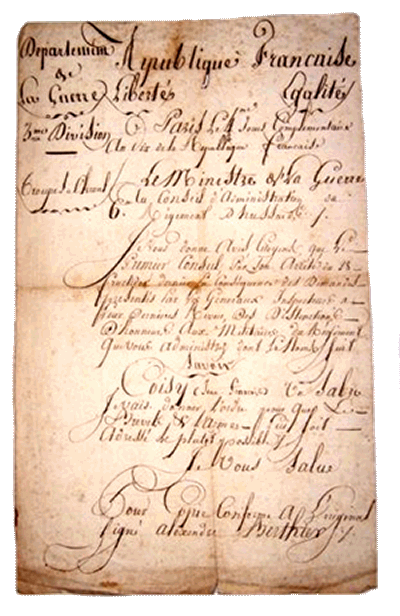 Departement République Française
de
La Guerre Liberté Egalité
3me Division à Paris Le 4 me Jours Complementaire
An de la République française
Le Ministre de La Guerre
Au Conseil d'Administration du
6. Regiment d'hussards
Je Vous donne Avis Citoyens que Le
Premier Consul Par Son Arrêté du 18
fructidor
présentés par les Généraux Inspecteurs
pour Dernieres Revues, Des Distinctions
D'honneur Aux Militaires du Regiment
Que Vous administrez dont Le Nom Suit
Savoir
Coisy Un Sabre
Je vais donner l'ordre pour que Le
Brevet & l'armes Lui Soit
Adressé le plutot possible
Je Vous Salue
Pour Copie Conforme A L'original
Signé alexandre Berthier